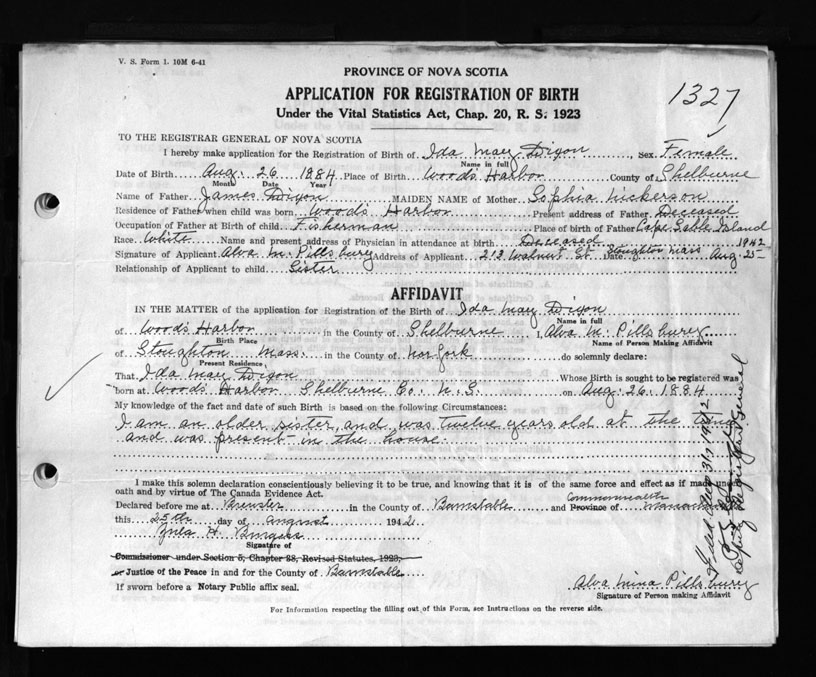 V. S. Form 1. 10M 6-41
PROVINCE OF NOVA SCOTIA
APPLICATION FOR REGISTRATION OF BIRTH
1327
Under the Vital Statistics Act, Chap. 20, R. S. 1923
TO THE REGISTRAR GENERAL OF NOVA SCOTIA
I hereby make application for the Registration of Birth of Ida May Dixon Sex Female
Name in full
Date of Birth Aug. 26 1884 Place of Birth Woods Harbor County of Shelburne
Month Date Year
Name of Father James Dixon MAIDEN NAME of Mother Sophia Nickerson
Residence of Father when child was born Woods Harbor Present address of Father Deceased
Occupation of Father at Birth of child Fisherman Place of birth of Father Cape Sable Island
Race White Name and present address of Physician in attendance at birth Deceased 1942
Signature of Applicant Alva M. Pillsbury Address of Applicant 213 Walnut St Stoughton Mass Date Aug-25
Relationship of Applicant to child Sister
AFFIDAVIT
IN THE MATTER of the application for Registration of the Birth of Ida May Dixon
Name in full
of Woods Harbor in the County of Shelburne I, Alva M. Pillsbury
Birth Place Name of Person Making Affidavit
of Stoughton Mass. in the County of Norfork do solemnly declare:
Present Residence
That Ida May Dixon Whose Birth is sought to be registered was
born at Woods Harbor Shelburne Co. N.S. on Aug. 26. 1884
My knowledge of the fact and date of such Birth is based on the following Circumstances:
I am an older sister, and was twelve years old at the time
and was present in the house.
I make this solemn declaration conscientiously believing it to be true, and knowing that it is of the same force and effect as if made under
oath and by virtue of The Canada Evidence Act.
Commonwealth
Declared before me at Brewster in the County of Barnstable and Province of
this 25th day of August 1942
H. Burgess
Signature of
Commissioner under Section 5, Chapter 38, Revised Statutes, 1923,
or Justice of the Peace in and for the County of Barnstable
If sworn before a Notary Public affix seal.
Alva Mina Pillsbury
Signature of Person making Affidavit
For Information respecting the filling out of this Form, see Instructions on the reverse side.
Filed Aug 31, 1942
Deputy Registrar General